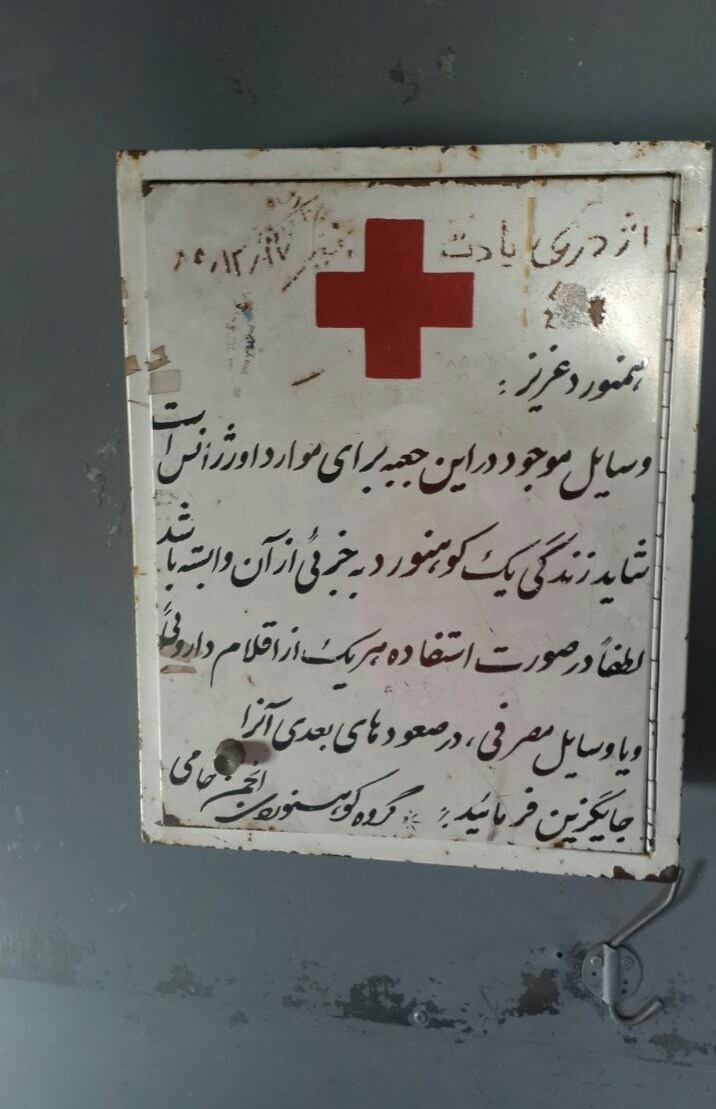 همنورد عزیز :
وسایل موجود در این جعبه برای موارد اورژانس است
شاید زندگی یک کوهنورد به جزئی از آن وابسته باشد
لطفاً در صورت استفاده هر یک از اقلام داروئی
و یا وسایل مصرفی ، در صعودهای بعدی آنرا
جایگزین فرمائید گروه کوهنوردی انجمن حامی